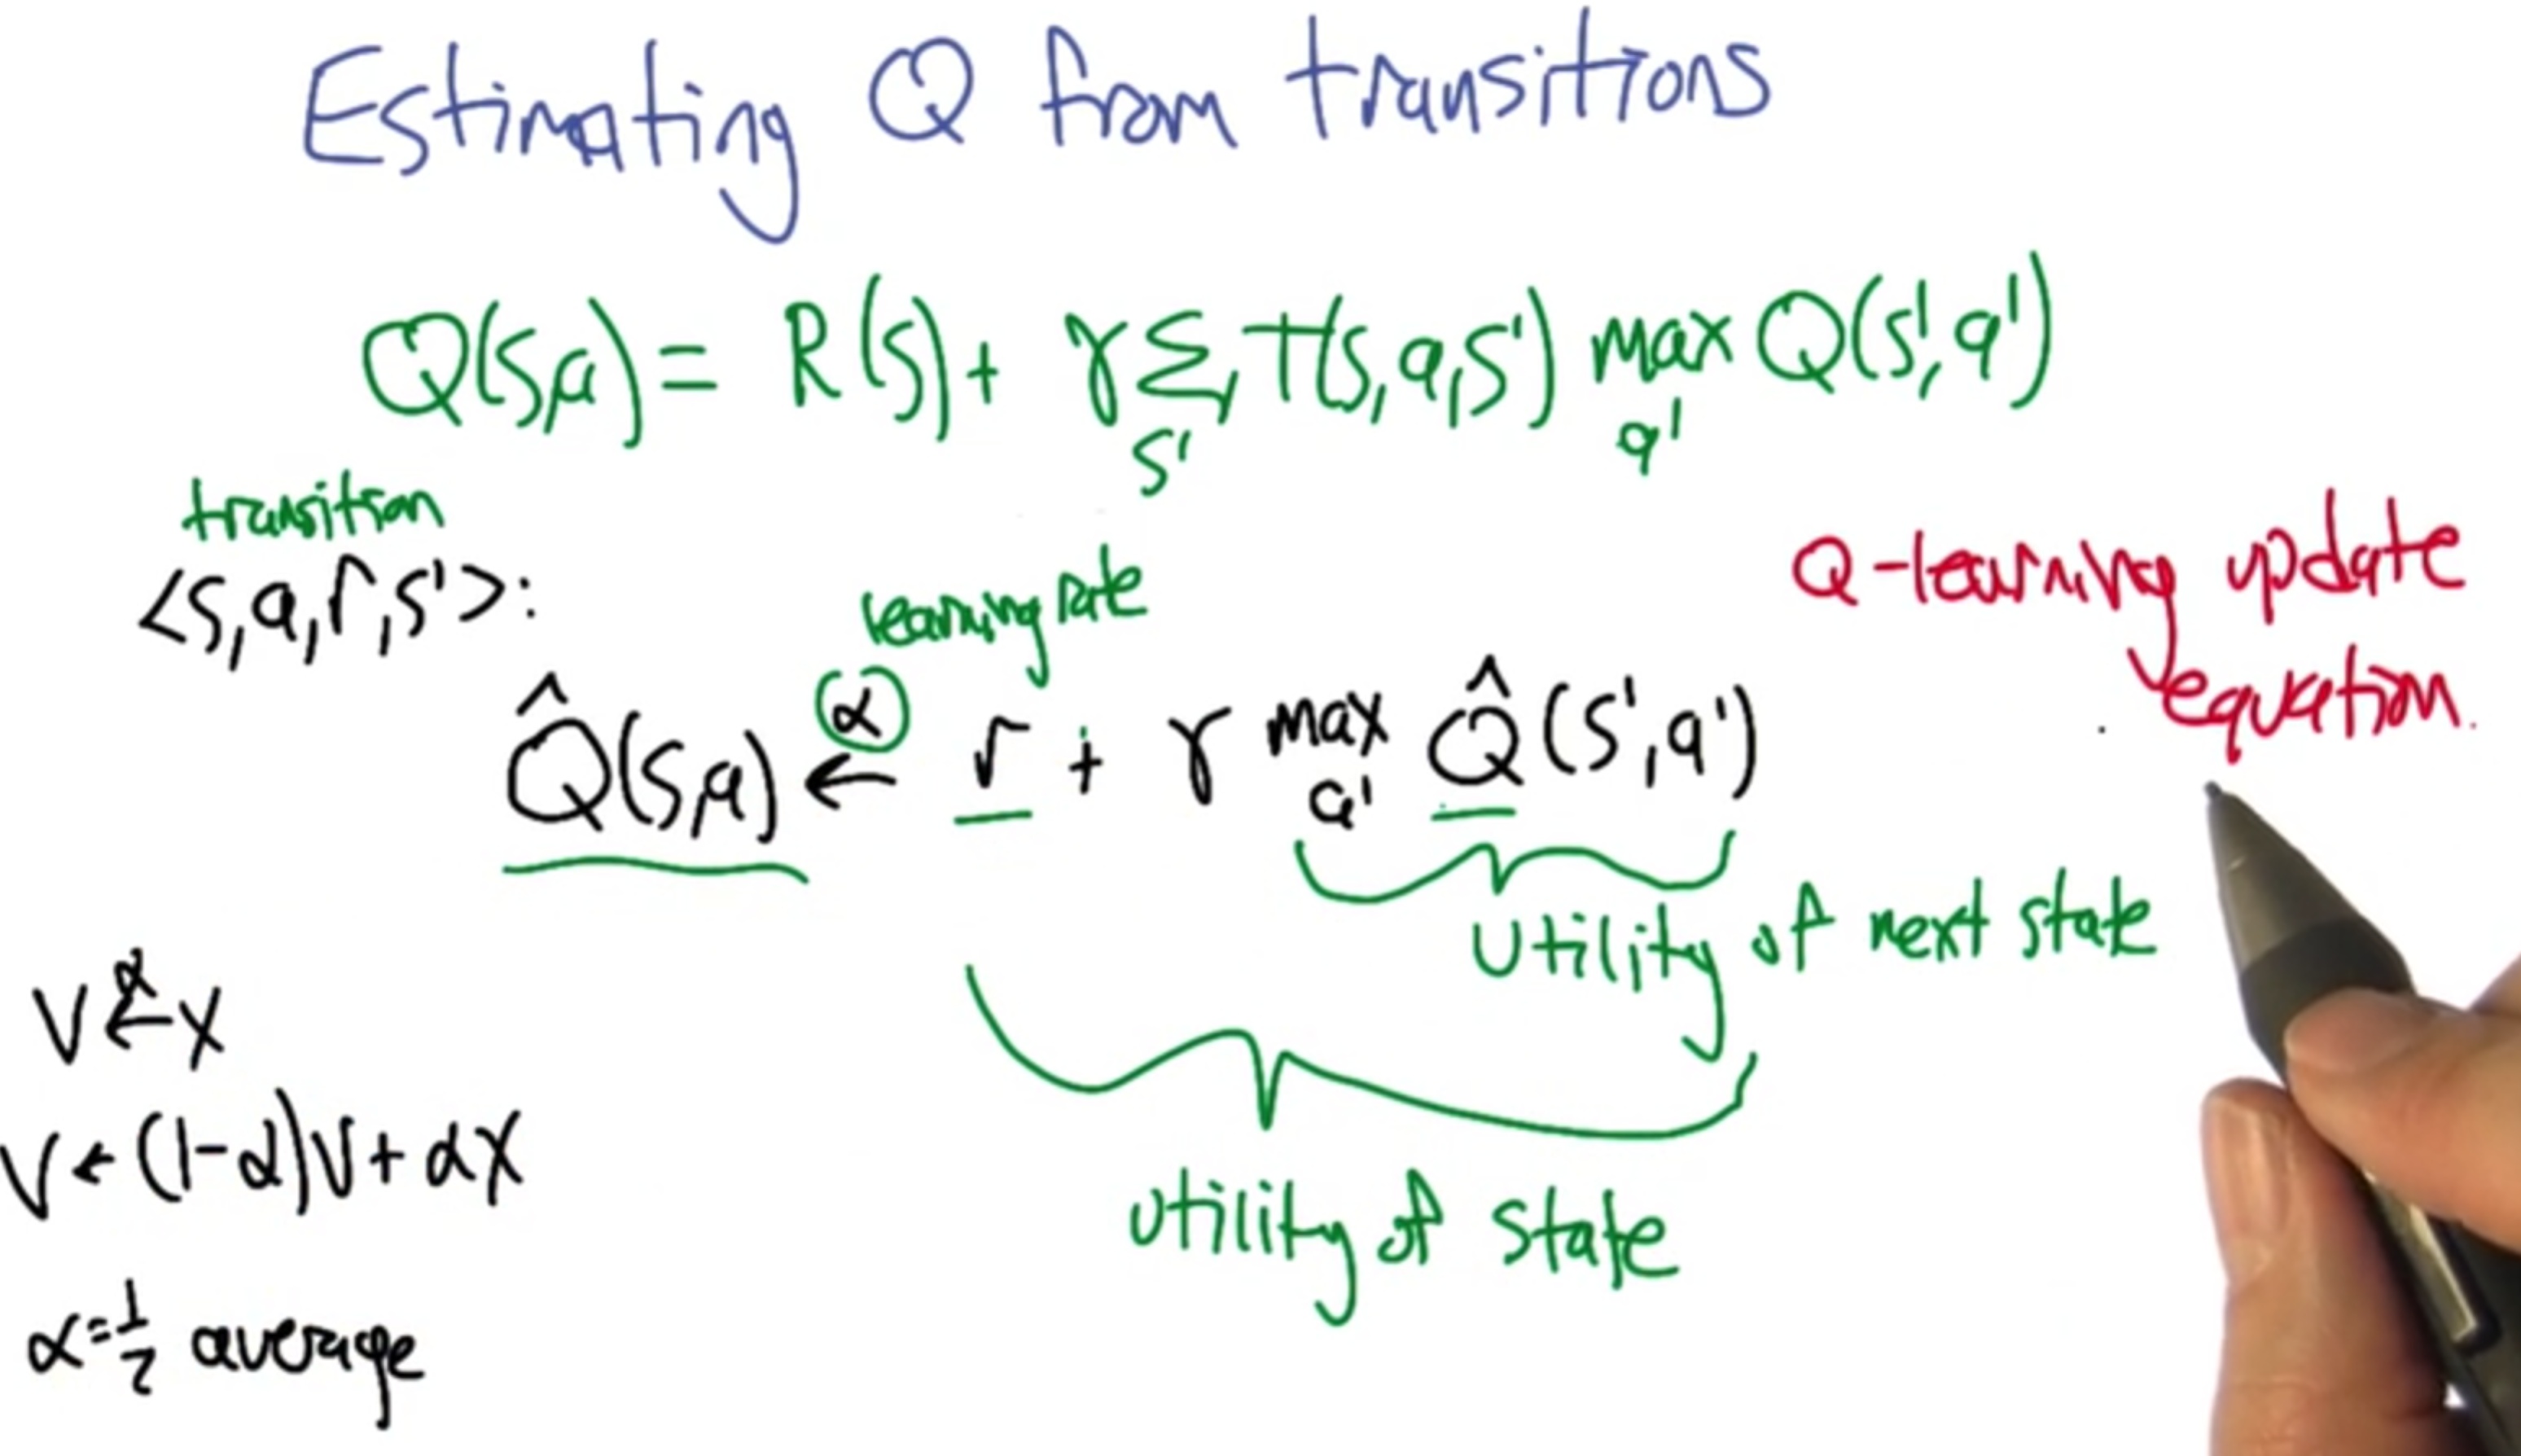 Estimating Q from transitions
Q(s,a) = R(s) + γ Σ T(s,a,s') max Q(s',a')
s' a'
transition
<s,a,r,s'>:
learning rate
Q-learning update
equation.
α
Q̂(s,a) ← r + γ max Q̂(s',a')
a'
utility of next state
V ←α X
V ← (1-α)V + αX
utility of state
α=1/2 average